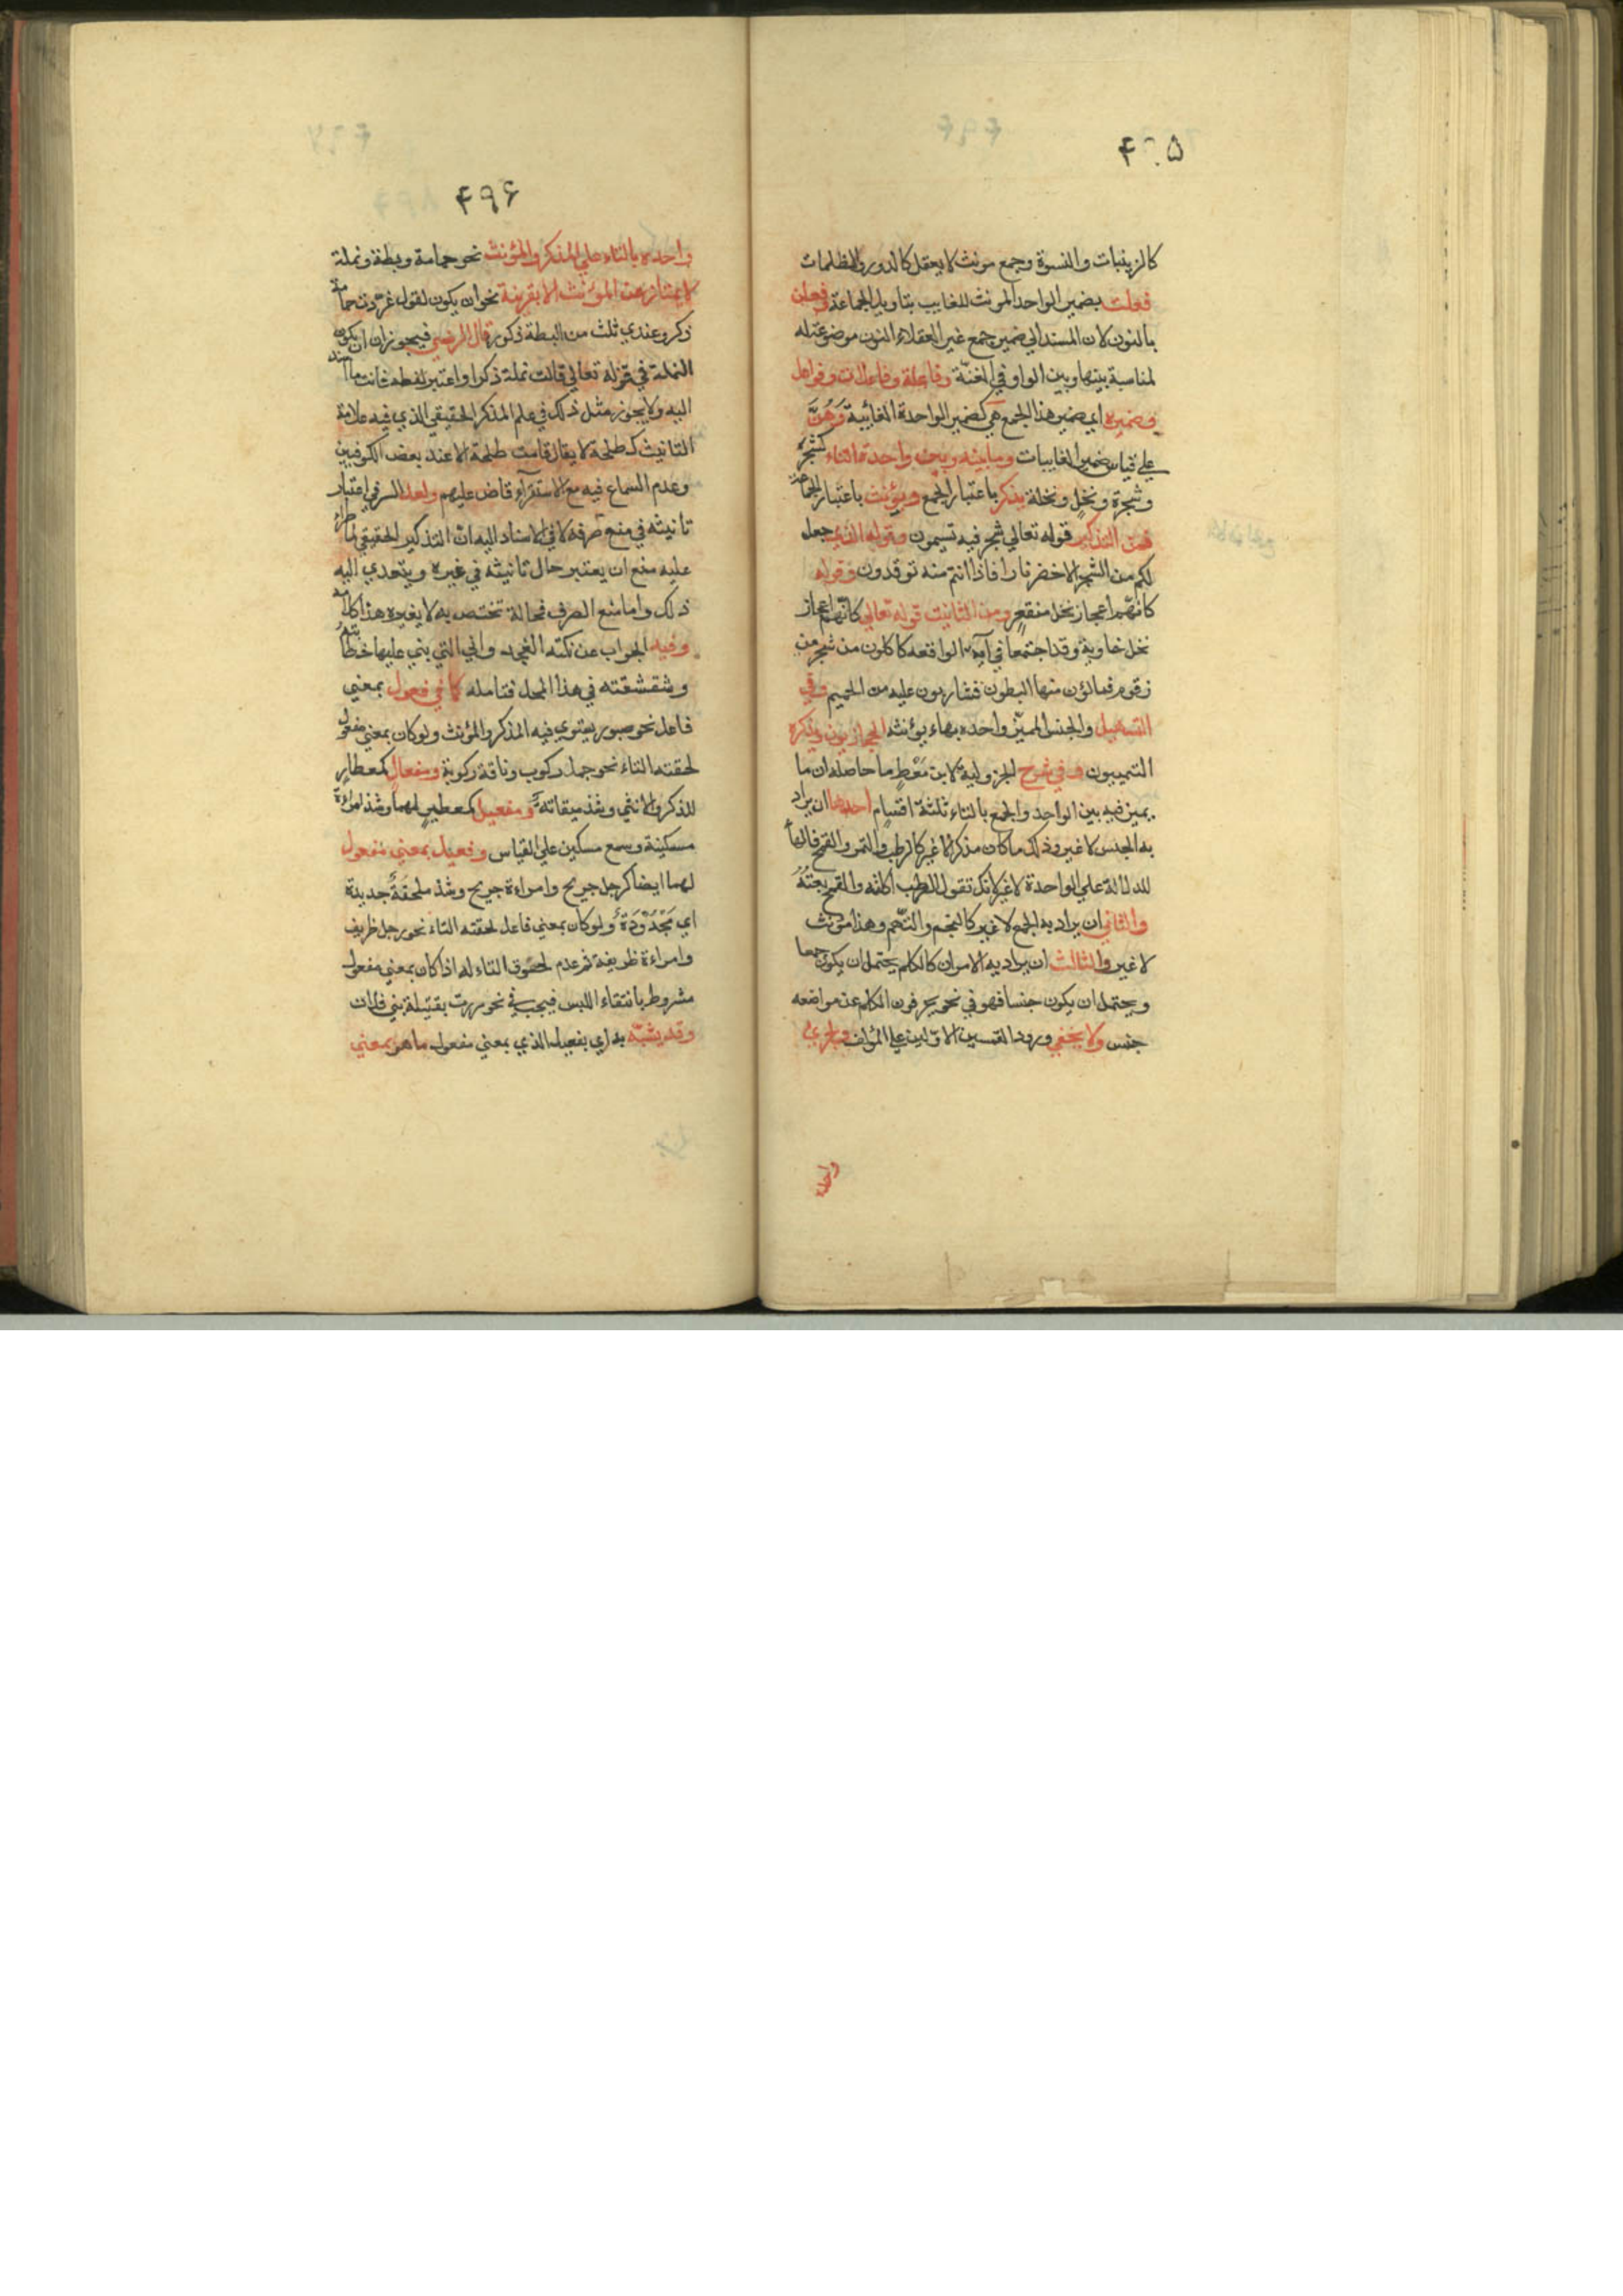 ۴۹۵
كالزينبات والنسوة وجمع مونث لا يعقل كالدور والظلمات
فعلت بضمير الواحد المونث للغايب بتاويل الجماعة وفعلن
بالنون لان المسند الي ضمير جمع غير العقلاء النون موضوعة له
لمناسبة بينها وبين الواو في الغنّة وفاعلة وفاعلات وفواعل
وضميره اي ضمير هذا الجمع هي كضمير الواحدة الغائبة وَهُنَّ
علي قياس ضمير الغايبات وما بينه وبين واحدة التاء كشجر
وشجرة ونخل ونخلة يذكر باعتبار الجمع ويؤنث باعتبار الجماعة
فمن التذكير قوله تعالي شجر فيه تسيمون وقوله الذي جعل
لكم من الشجر الاخضر نارا فاذا انتم منه توقدون وقوله
كانهم اعجاز نخل منقعر ومن التانيث قوله تعالي كانهم اعجاز
نخل خاوية وقد اجتمعا في آية الواقعه لاكلون من شجر من
زقوم فمالؤن منها البطون فشاربون عليه من الحميم وفي
التسهيل والجنس المميّز واحده بهاء يؤنثه الحجازيون ويذكره
التميميون وفي شرح الجزولية لابن مُعْطٍ ما حاصله ان ما
يميز فيه بين الواحد والجمع بالتاء ثلثة اقسام احدها ان يراد
به الجنس لا غير وذلك ما كان مذكرا لا غير كالرطب والتمر والقمح فانها
للدلالة علي الواحدة لا غير لانك تقول الرطب اكلته والقمح بعتهُ
والثاني ان يراد به الجمع لا غير كالتخم والتُهم وهذا مونث
لا غير والثالث ان يراد به الامران كالكلم يحتمل ان يكون جمعا
ويحتمل ان يكون جنسا فهو في نحو يحرفون الكلم عن مواضعه
جنس ولا يخفي ورود القسمين الاولين علي المؤلف
واحده
۴۹۶
واحده بالتاء علي المذكر والمؤنث نحو حمامة وبطة ونملة
لا يمتاز عن المؤنث الا بقرينة نحو ان يكون لقول غردت حمامة
ذكر وعندي ثلث من البطة ذكور قال الرضي فيجوز ان يكون
النملة في قوله تعالي قالت نملة ذكرا واعتبر لفظه فانث ما اسند
اليه ولا يجوز مثل ذلك في علم المذكر الحقيقي الذي فيه علامة
التانيث كطلحة لا يقال قامت طلحة الا عند بعض الكوفيين
وعدم السماع فيه مع الاستقرآء قاض عليهم ولعل السر في اعتبار
تانيثه في منع صرفه لا في الاسناد اليه ان التذكير الحقيقي لما طرا
عليه منع ان يعتبر حال تانيثه في غيره ويتعدي اليه
ذلك واما منع الصرف فحالة تختص به لا بغيره هذا كلامه
وفيه الجواب عن نكته التي بني عليها
وشقشقته في هذا المحل فتامله كما في فعول بمعني
فاعل نحو صبور يستوي فيه المذكر والمؤنث ولو كان بمعني مفعول
لحقته التاء نحو جمل ركوب وناقة ركوبة ومفعال كمعطار
للذكر والانثي وشذ ميقاتة ومفعيل كمعطير لهما وشذ امراة
مسكينة وسمع مسكين علي القياس وفعيل بمعني مفعول
لهما ايضا كرجل جريح وامراءة جريح وشذ ملحفةٌ جديدة
اي مَجْدُوْدَةٌ ولو كان بمعني فاعل لحقته التاء نحو رجل ظريف
وامراءة ظريفة ثم عدم لحوق التاء له اذا كان بمعني مفعول
مشروط بانتفاء اللبس فيجب في نحو مررت بقتيلة بني فلان
وقد يشبّه به اي بفعيل الذي بمعني مفعول ما هو بمعني